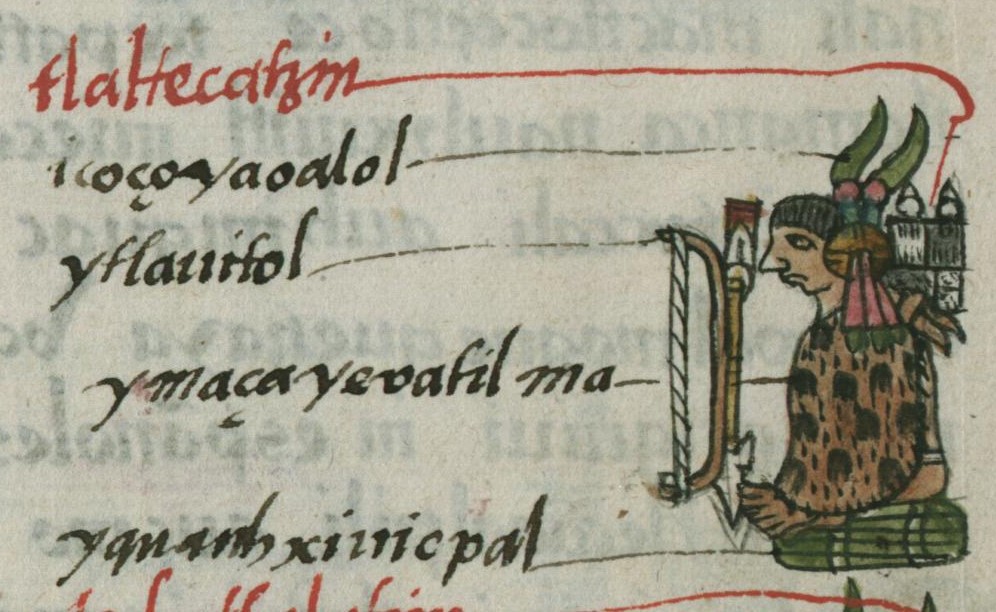 tlaltecatzin
icoçoyaoalol
ytlauitol
ymaçayevatilma
yquauhxiuicpal